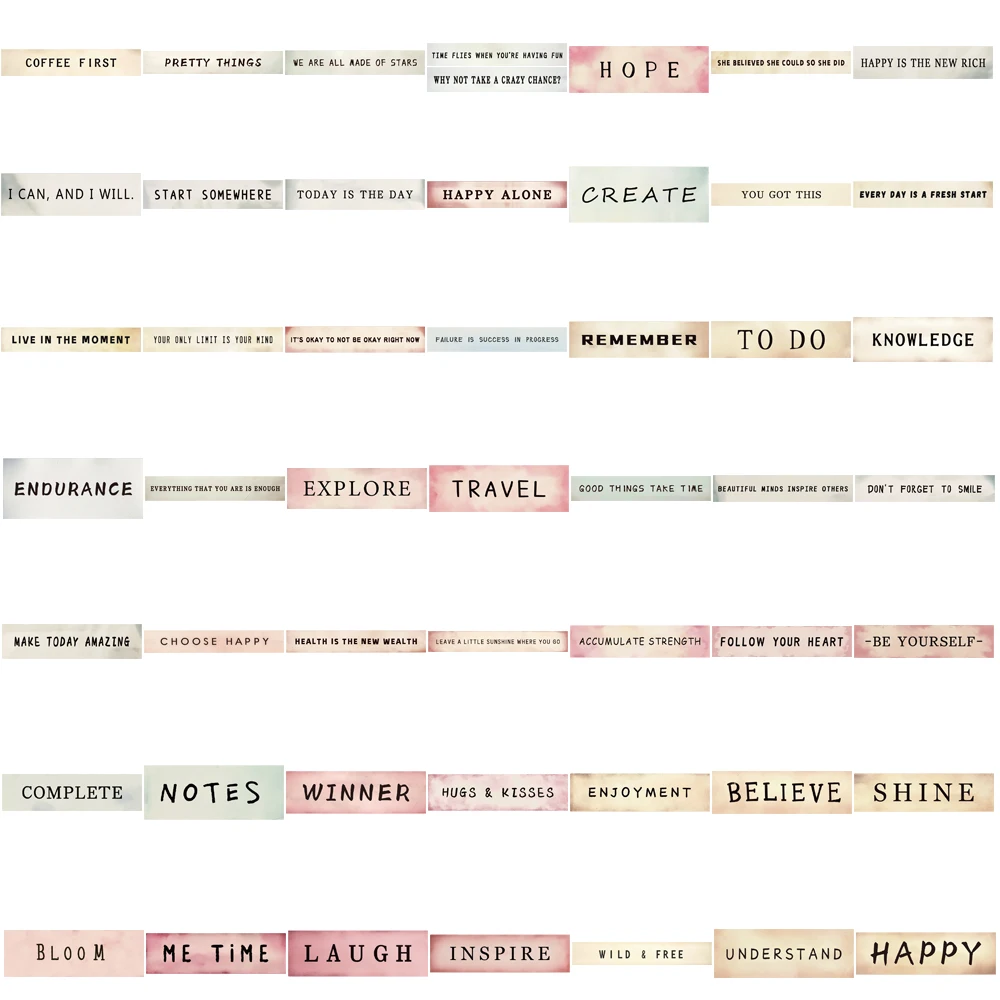 COFFEE FIRST
PRETTY THINGS
WE ARE ALL MADE OF STARS
TIME FLIES WHEN YOU'RE HAVING FUN
WHY NOT TAKE A CRAZY CHANCE?
HOPE
SHE BELIEVED SHE COULD SO SHE DID
HAPPY IS THE NEW RICH
I CAN, AND I WILL.
START SOMEWHERE
TODAY IS THE DAY
HAPPY ALONE
CREATE
YOU GOT THIS
EVERY DAY IS A FRESH START
LIVE IN THE MOMENT
YOUR ONLY LIMIT IS YOUR MIND
IT'S OKAY TO NOT BE OKAY RIGHT NOW
FAILURE IS SUCCESS IN PROGRESS
REMEMBER
TO DO
KNOWLEDGE
ENDURANCE
EVERYTHING THAT YOU ARE IS ENOUGH
EXPLORE
TRAVEL
GOOD THINGS TAKE TIME
BEAUTIFUL MINDS INSPIRE OTHERS
DON'T FORGET TO SMILE
MAKE TODAY AMAZING
CHOOSE HAPPY
HEALTH IS THE NEW WEALTH
LEAVE A LITTLE SUNSHINE WHERE YOU GO
ACCUMULATE STRENGTH
FOLLOW YOUR HEART
-BE YOURSELF-
COMPLETE
NOTES
WINNER
HUGS & KISSES
ENJOYMENT
BELIEVE
SHINE
BLOOM
ME TiME
LAUGH
INSPIRE
WILD & FREE
UNDERSTAND
HAPPY